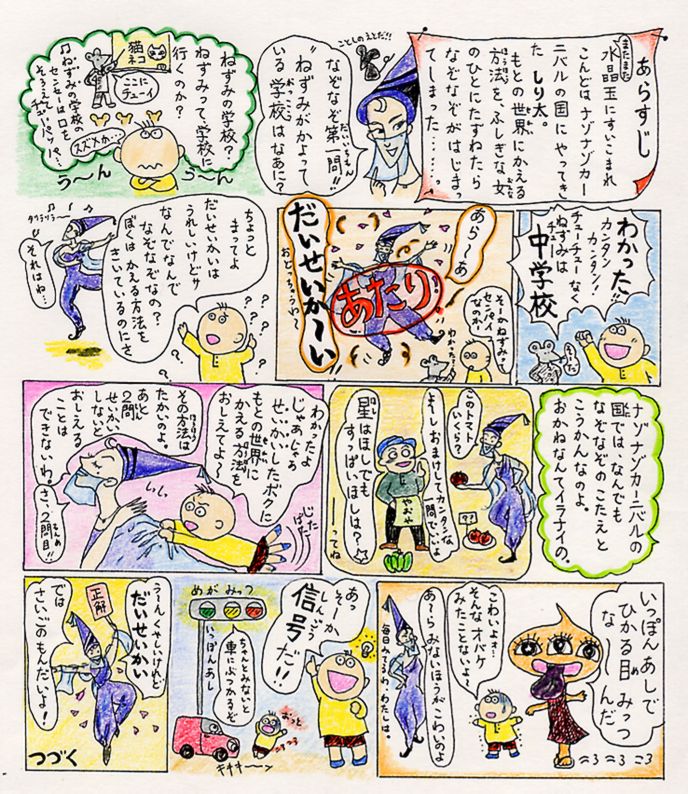 あらすじ
またまた
水晶玉にすいこまれ
こんどはナゾナゾカー
ニバルの国にやってき
た しり太。
もとの世界にかえる
方法を、ふしぎな女
のひとにたずねたら
なぞなぞがはじまっ
てしまった……。
ことしのえとだ!!
なぞなぞ第一問!!
〝ねずみがかよって
いる学校はなあに?
ねずみの学校?
ねずみって、学校に
行くのか?
猫
ネコ
ここに
チューイ
♫ねずみの学校の
センセーは口を
そろえて
チューパッパ…
スズメか…
う〜ん
う〜ん
わかった!!
カンタン
カンタン!
チューチューなく
ねずみは
チュー
中学校
あら〜あ
だいせいか〜い
おどっちゃうわ〜
あたり
そーかねずみって
センパイ
なのか
わかった?
ちょっと
まってよ
だいせいかいは
うれしいけどサ
なんでなんで
なぞなぞなの?
ぼくはかえる方法を
きいているのにさ
それはね…
ナゾナゾカーニバルの
国では、なんでも
なぞなぞのこたえと
こうかんなのよ。
おかねなんてイラナイの。
このトマト
いくら?
よーしおまけしてカンタンな
一問でいいぞ
星はほしでも
すっぱいほしは?
―ってね
やおや
わかったよ
じゃあじゃあ
せいかいしたボクに
もとの世界に
かえる方法を
おしえてよ〜
じた
ばた
その方法は
たかいのよ。
あと
2問
せいかい
しないと
おしえる
ことは
できないわ。さっ2問目!!
いっぽんあしで
ひかる目 みっつ
な〜んだ
こわいよォ…
そんなオバケ
みたことないよ!
あ〜らみないほうがこわいのよ
毎日みてるわ、わたしは。
あっ
そーか
しんごう
信号だ!!
めがみっつ
いっぽんあし
ちゃんとみないと
車にぶつかるぞ
おっと
キキキーーン
正解
う〜ん くやしいけれど
だいせいかい
では
さいごのもんだいよ!
つづく